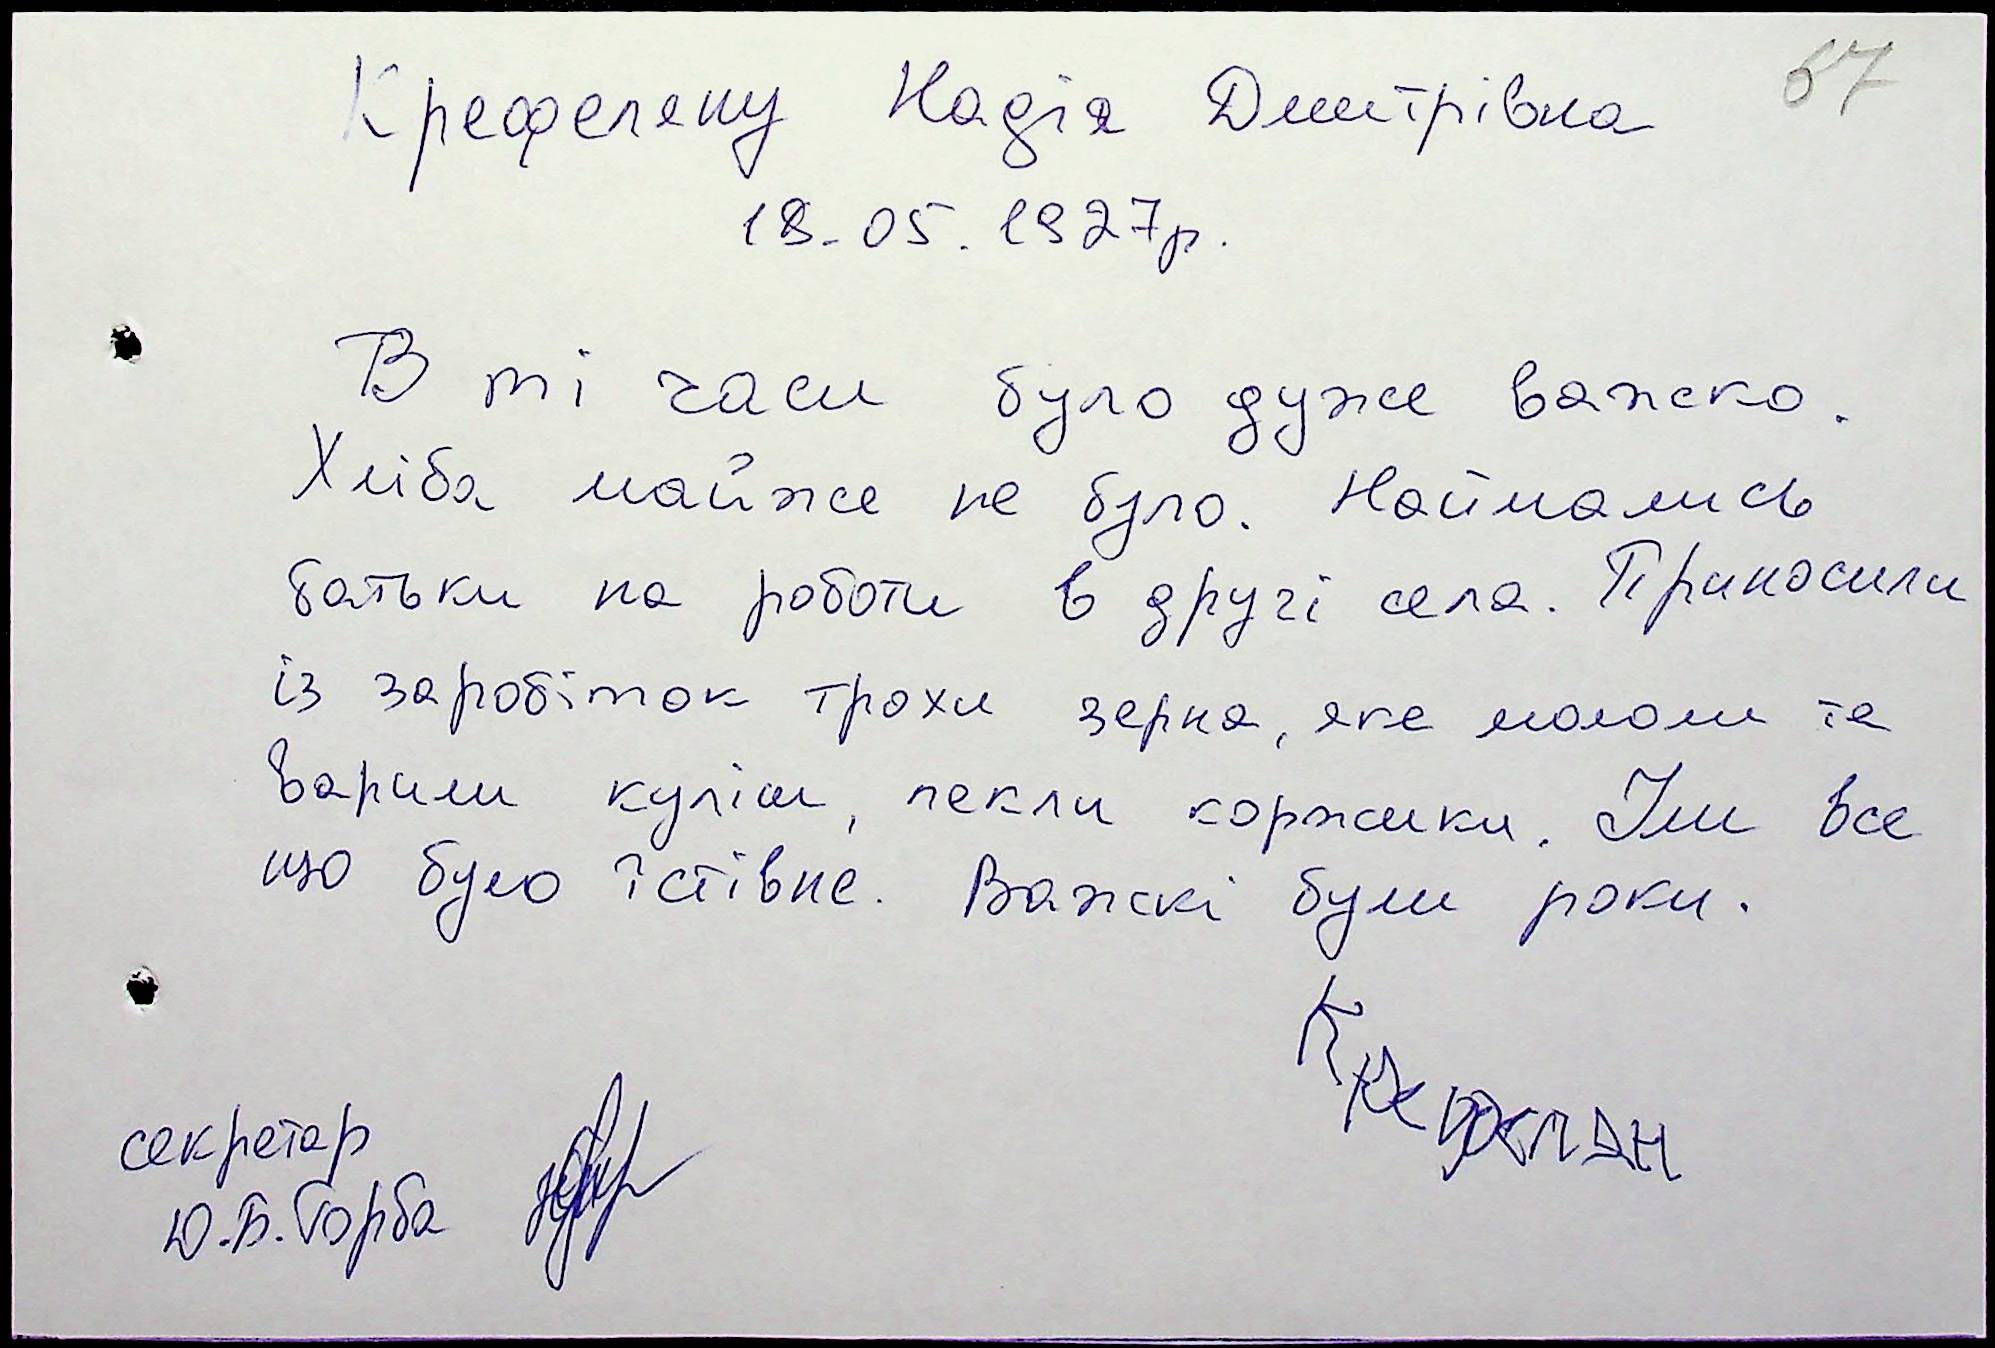 67
Крефеляну Надія Дмитрівна
18.05.1927р.
В ті часи було дуже важко.
Хліба майже не було. Наймались
батьки на роботи в другі села. Приносили
із заробіток трохи зерна, яке мололи та
варили куліш, пекли коржики. Їли все
що було їстівне. Важкі були роки.
секретар
Ю.Б. Горба